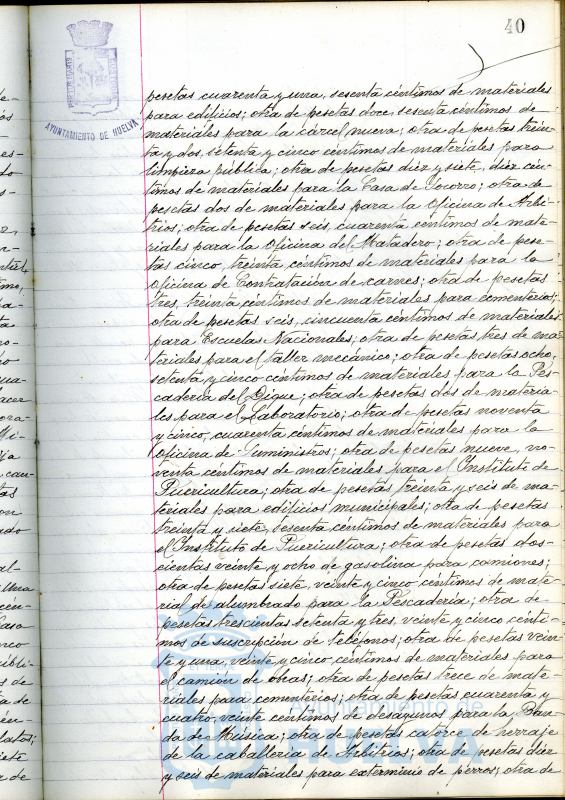 40
AYUNTAMIENTO DE HUELVA
pesetas cuarenta y una, sesenta céntimos de materiales
para edificios; otra de pesetas doce, sesenta céntimos de
materiales para la cárcel nueva; otra de pesetas trein-
ta y dos, setenta y cinco céntimos de materiales para
limpieza pública; otra de pesetas diez y siete, diez cén-
timos de materiales para la Casa de Socorro; otra de
pesetas dos de materiales para la Oficina de Arbi-
trios; otra de pesetas seis, cuarenta céntimos de mate-
riales para la Oficina del Matadero; otra de pese-
tas cinco, treinta céntimos de materiales para la
Oficina de Contratación de carnes; otra de pesetas
tres, treinta céntimos de materiales para cementerio;
otra de pesetas seis, cincuenta céntimos de materiales
para Escuelas Nacionales; otra de pesetas tres de ma-
teriales para el taller mecánico; otra de pesetas ocho,
setenta y cinco céntimos de materiales para la Pes-
cadería del Dique; otra de pesetas dos de materia-
les para el Laboratorio; otra de pesetas noventa
y cinco, cuarenta céntimos de materiales para la
Oficina de Suministros; otra de pesetas nueve, no-
venta céntimos de materiales para el Instituto de
Puericultura; otra de pesetas treinta y seis de ma-
teriales para edificios municipales; otra de pesetas
treinta y siete, sesenta céntimos de materiales para
el Instituto de Puericultura; otra de pesetas dos-
cientas veinte y ocho de gasolina para camiones;
otra de pesetas siete, veinte y cinco céntimos de mate-
rial de alumbrado para la Pescadería; otra de
pesetas trescientas setenta y tres, veinte y cinco cénti-
mos de suscripción de teléfonos; otra de pesetas vein-
te y una, veinte y cinco céntimos de materiales para
el camión de obras; otra de pesetas trece de mate-
riales para cementerios; otra de pesetas cuarenta y
cuatro, veinte céntimos de desayunos para la Ban-
da de Música; otra de pesetas catorce de herraje
de la caballería de Arbitrios; otra de pesetas diez
y seis de materiales para exterminio de perros; otra de
Ayuntamiento de
HUELVA